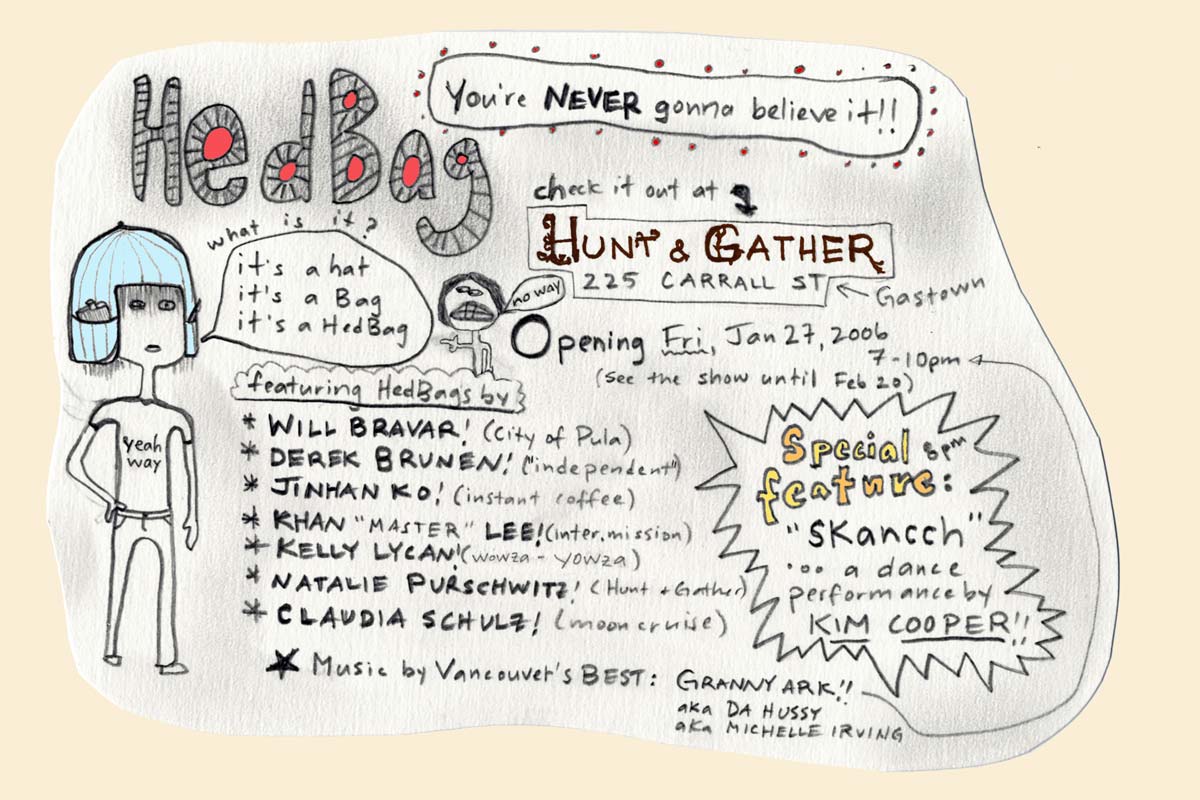 HedBag
You're NEVER gonna believe it!!
check it out at
HUNT & GATHER
225 CARRALL ST
Gastown
what is it?
it's a hat
it's a Bag
it's a HedBag
no way
Opening Fri, Jan 27, 2006
7-10pm
(see the show until Feb 20)
yeah
way
featuring HedBags by
* WILL BRAVAR! (City of Pula)
* DEREK BRUNEN! ("independent")
* JINHAN KO! (instant coffee)
* KHAN "MASTER" LEE! (inter.mission)
* KELLY LYCAN! (wowza - yowza)
* NATALIE PURSCHWITZ! (Hunt + Gather)
* CLAUDIA SCHULZ! (mooncruise)
Special 8pm
feature:
"SKancch"
... a dance
performance by
KIM COOPER!!
★ Music by Vancouver's BEST: GRANNYARK!!
aka DA HUSSY
aka MICHELLE IRVING